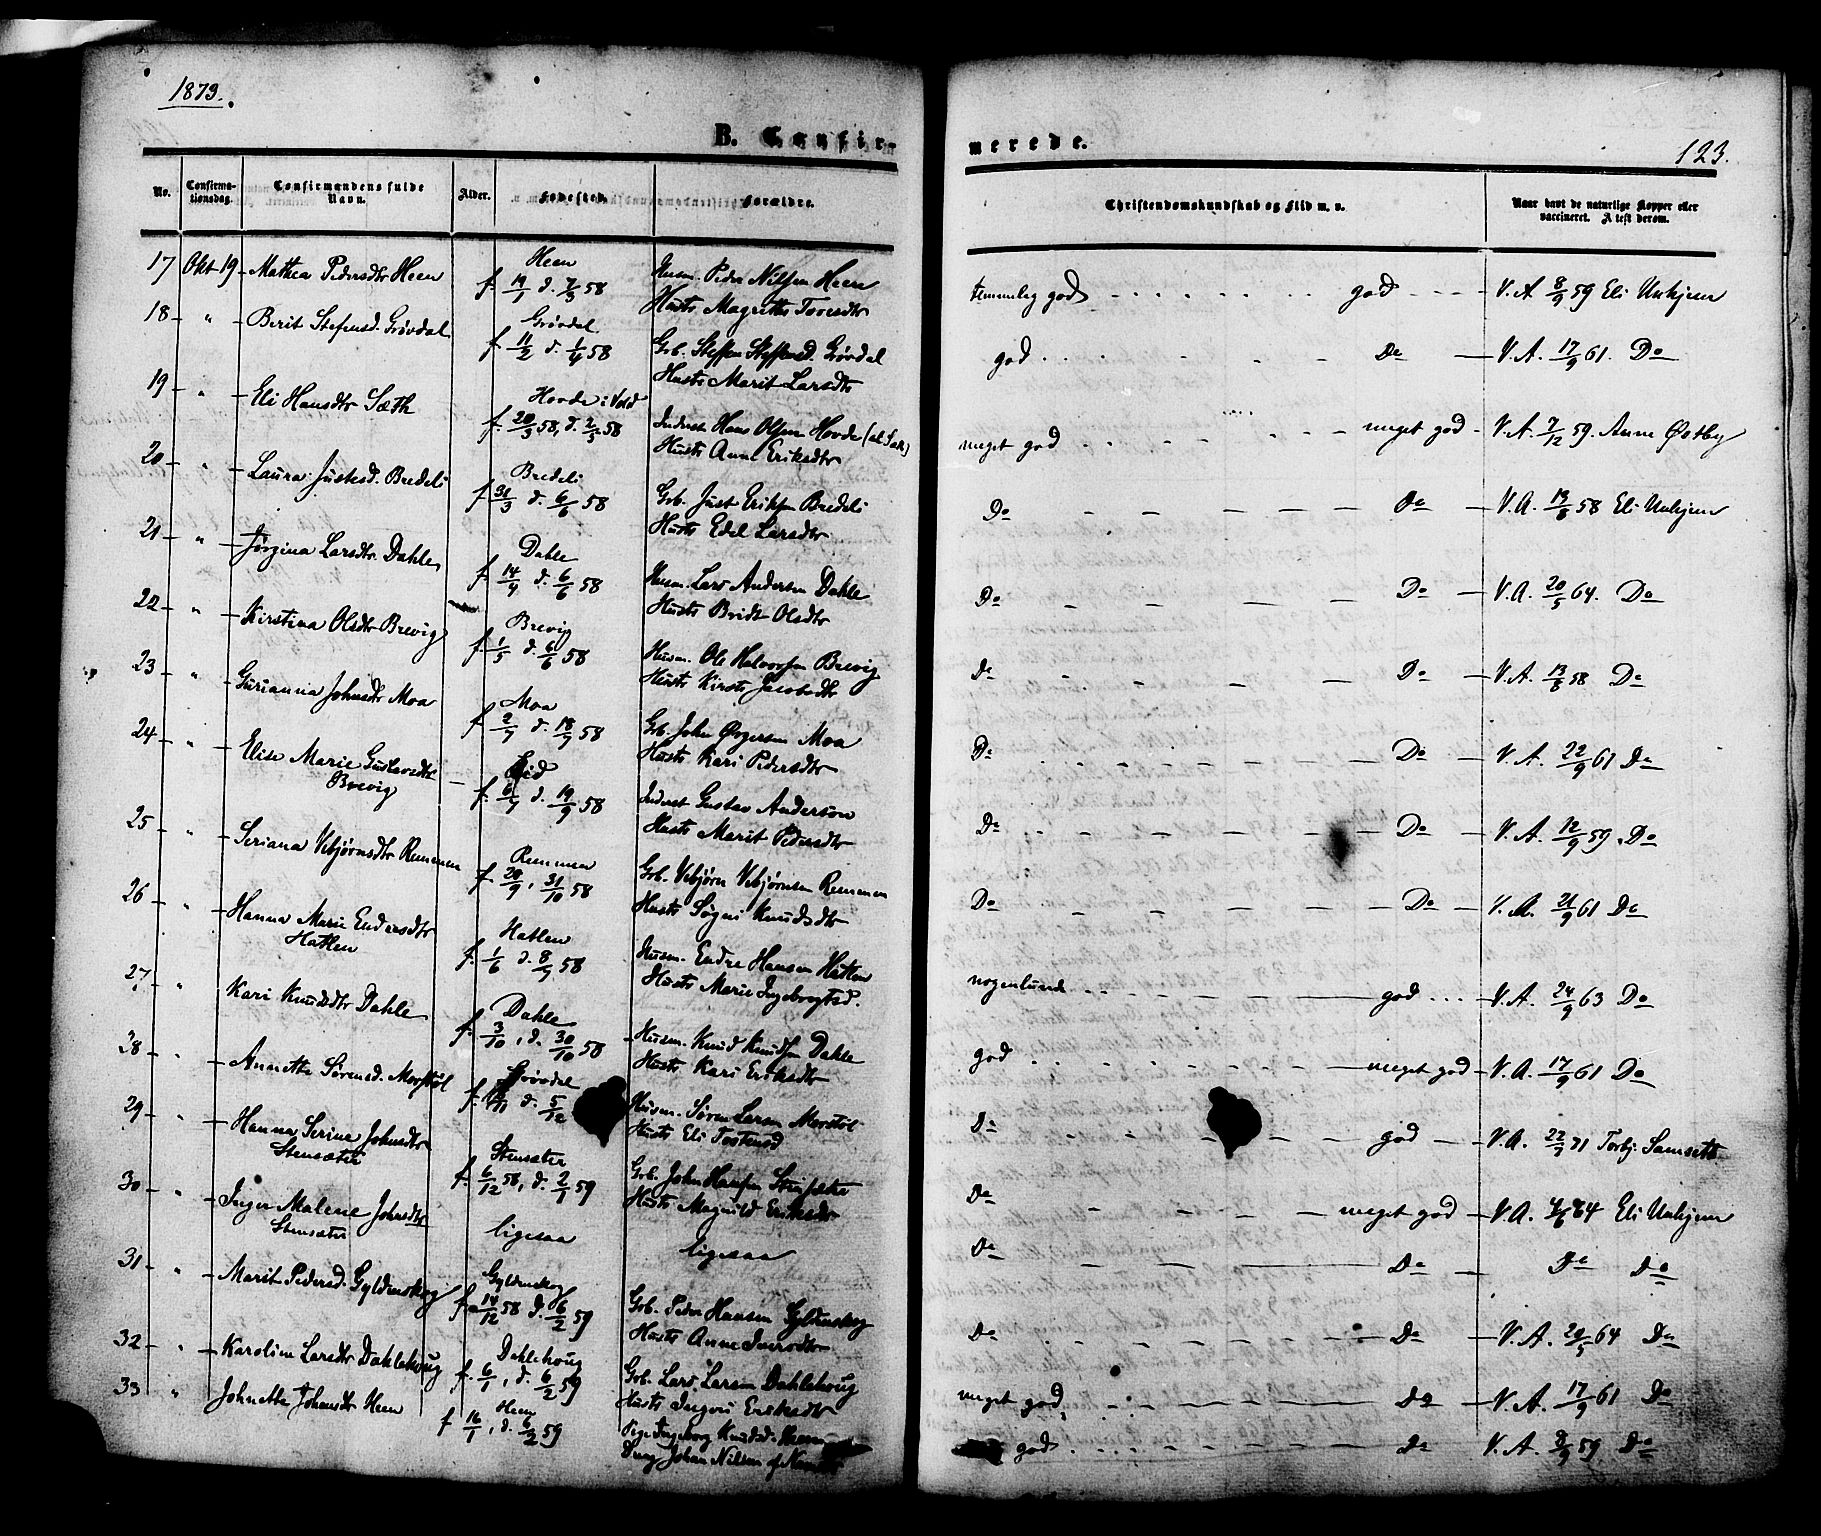 1873.
B. Confirmerede.
123.
No. Confirmationsdag. Confirmandens fulde Navn. Alder. Fødested. Forældre. Christendomskundskab og Flid m. v. Naar havt de naturlige Kopper eller vaccineret. Attest derom.
17 Okt 19 Mathea Pedersdtr Heen
Heen
f. 19/1 d. 7/3 58
Husm. Peder Nilsen Heen
Hustr Magrethe Toresdtr
temmelig god god V. A. 8/9 59 Eli Unhjem
18 " Berit Stefensd. Grövdal
Grövdal
f. 11/2 d. 1/4 58
Grb. Steffen Steffensd. Grövdal
Hustr Marit Larsdtr
god Do V. A. 17/9 61. Do
19 " Eli Hansdtr Sæth
Hovde i Vold
f. 20/3 58, d. 2/5 58
Inderst Hans Olsen Hovde
Hustr Anne Eriksdtr
meget god meget god V. A. 7/12 59. Anne Østby
20 " Laura Justesd. Bredeli
Bredeli
f. 31/3 d. 6/6 58
Grb. Just Eriksen Bredeli
Hustr Edel Larsdtr
Do Do V. A. 13/8 58 Eli Unhjem
21 " Jørgina Larsdtr Dahle
Dahle
f. 14/4 d. 6/6 58
Husm. Lars Andersen Dahle
Hustr Bridt Olsdtr
Do Do V. A. 20/5 64. Do
22 " Kirstina Olsdtr Brevig
Brevig
f. 1/5 d. 6/6 58
Husm. Ole Halvorsen Brevig
Hustr Kirsti Jacobsdtr
Do Do V. A. 13/8 58 Do
23 " Gurianna Johnsdtr Moa
Moa
f. 2/7 d. 18/7 58
Grb. John Ørgersen Moa
Hustr Kari Pedersdtr
Do Do V. A. 22/9 61 Do
24 " Elise Marie Gustavsdtr
Brevig
Lid
f. 6/7 d. 19/9 58
Inderst Gustav Anderson
Hustr Marit Pedersdtr
Do Do V. A. 12/9 59. Do
25 " Seriana Vebjørnsdtr Remmen
Remmen
f. 20/9, 31/10 58
Grb. Vebjørn Vebjørnsen Remmen
Hustr Søgni Knudsdtr
Do Do V. A. 21/9 61 Do
26 " Hanna Marie Endersdtr
Hatlen
Hatlen
f. 1/6 d. 8/7 58
Husm. Endre Hansen Hatlen
Hustr Marie Ingebrigtsd.
nogenlunde god V. A. 24/9 63 Do
27 " Kari Knudsdtr Dahle
Dahle
f. 3/10, d. 30/10 58
Husm. Knud Knudsen Dahle
Hustr Kari Eriksdtr
god meget god V. A. 17/9 61 Do
28 " Annette Sørensd. Morstöl
Grövdal
d. 5/12
Husm. Søren Larsen Morstöl
Hustr Eli Tostensd
Do god V. A. 22/7 71 Torbj. Samseth
29 " Hanna Serine Johnsdtr
Stensæter
Stensæter
f. 6/12 58, d. 2/1 59
Grb. John Hansen
Hustr Magnild Eriksdtr
Do meget god V. A. 64 Eli Unhjem
30 " Inger Malene Johnsdtr
Stensæter
ligesaa
ligesaa
Do Do Do Do
31 " Marit Pedersd. Gyldenskog
Gyldenskog
f. 14/12 58 d. 6/2 59
Grb. Peder Hansen Gyldenskog
Hustr Anne Iversdtr
Do Do V. A. 20/5 64 Do
32 " Karoline Larsdtr Dahlehoug
Dahlehoug
f. 6/1, d. 6/2 59
Grb. Lars Larsen Dahlehoug
Hustr Ingeri Eriksdtr
meget god Do V. A. 17/9 61 Do
33 " Johnette Johansdtr Heen
Heen
f 16/1, d. 6/2 59
Pige Ingeborg Knudsd. Heen
Ung. Johan Nilsen af
god Do V. A. 8/9 59. Do